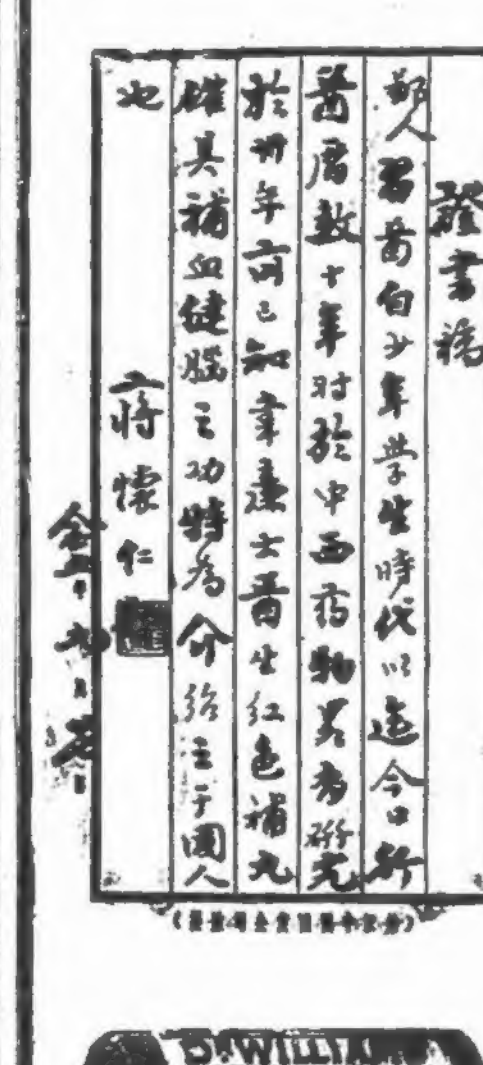 證書稿
鄙人習醫自少年學生時代以迄今日行
醫居數十年對於中西葯物畧為研究
於卅年前已知韋廉士醫生紅色補丸
確具補血健腦之功特為介紹之于國人
也
蔣懷仁
DR. WILLIA